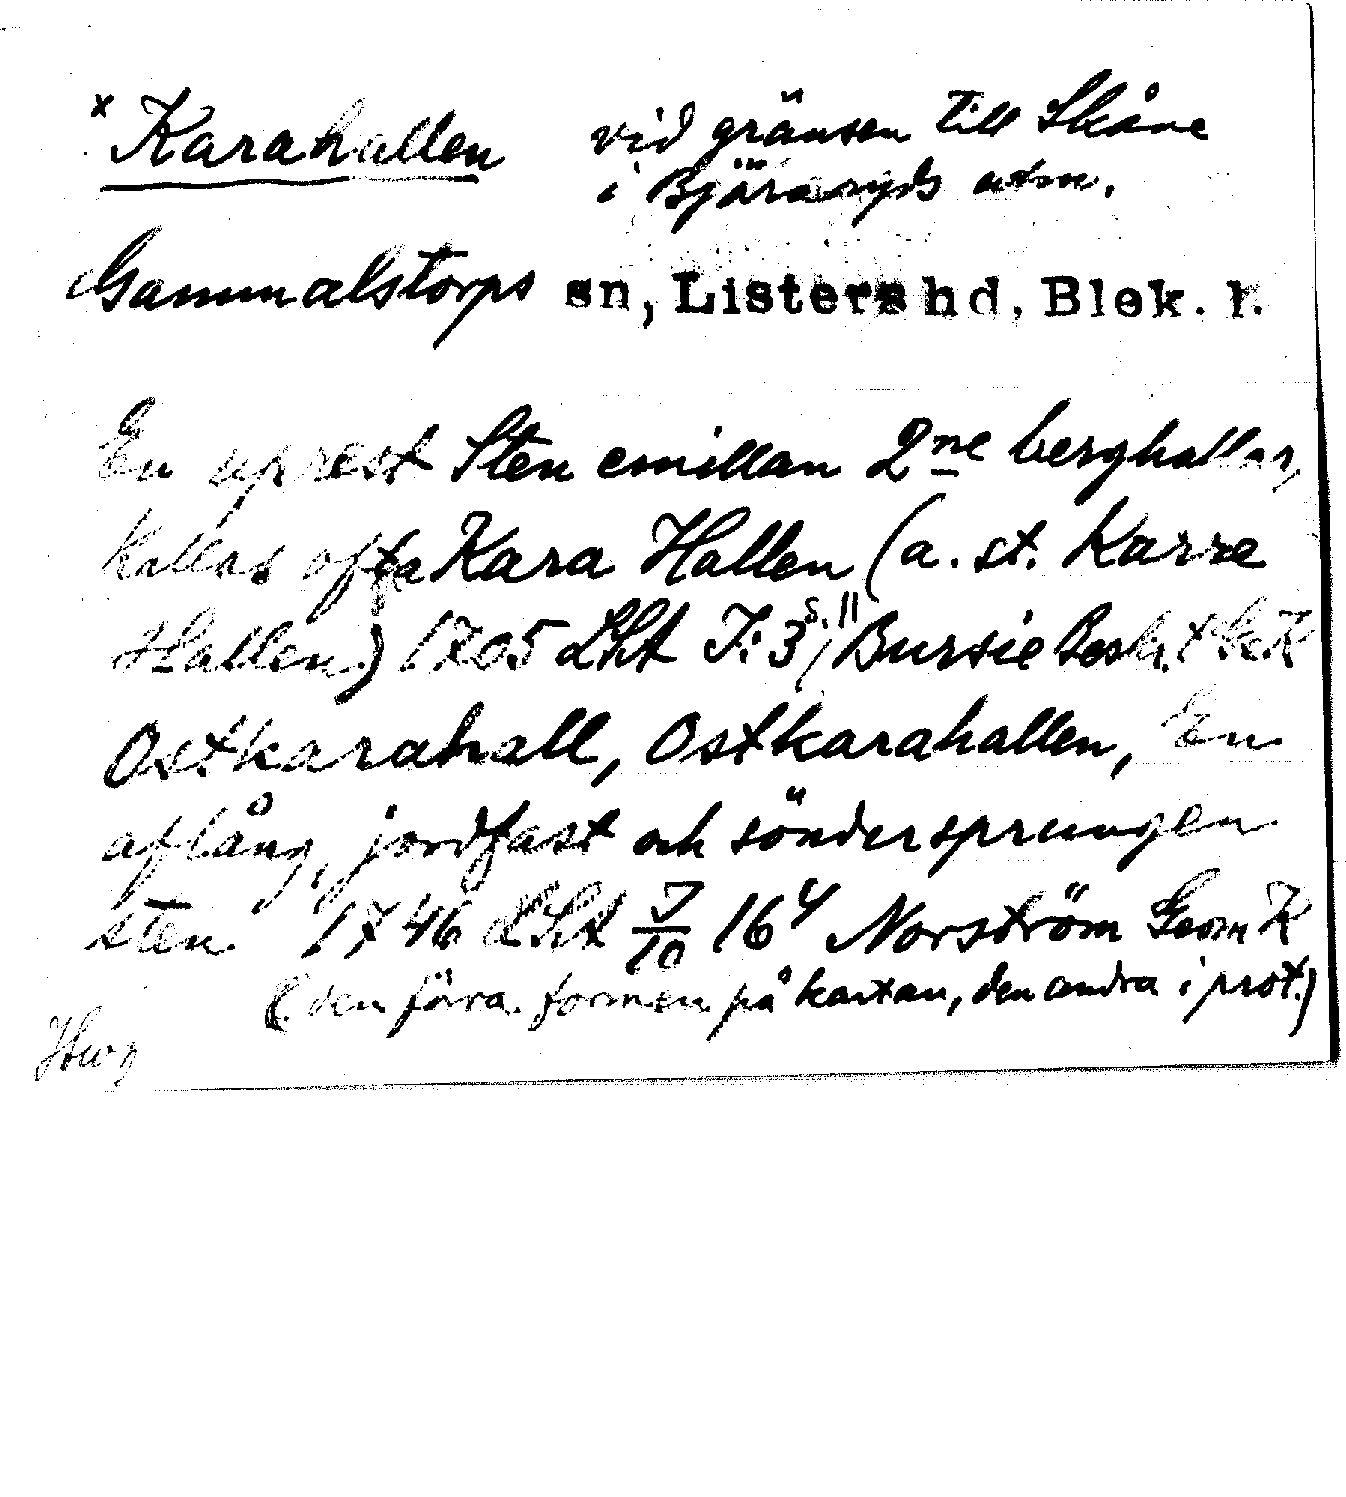 x Karahallen vid gränsen till Skåne
i Bjäraryds utm.
Gammalstorps sn, Listers hd, Blek. l.
En uprest Sten emillan 2ne berghallar,
kallas ofta Kara Hallen (a. st. Karre
Hallen) 1705 LHt I:3 s. 11 Bursie Beskr.
Ostkarahall, Ostkarahallen, En
aflång, jordfast och söndersprungen
sten 1746 LHt 7/10 16 4 Norström Geom K
(den förra formen på kartan, den andra i prot.)